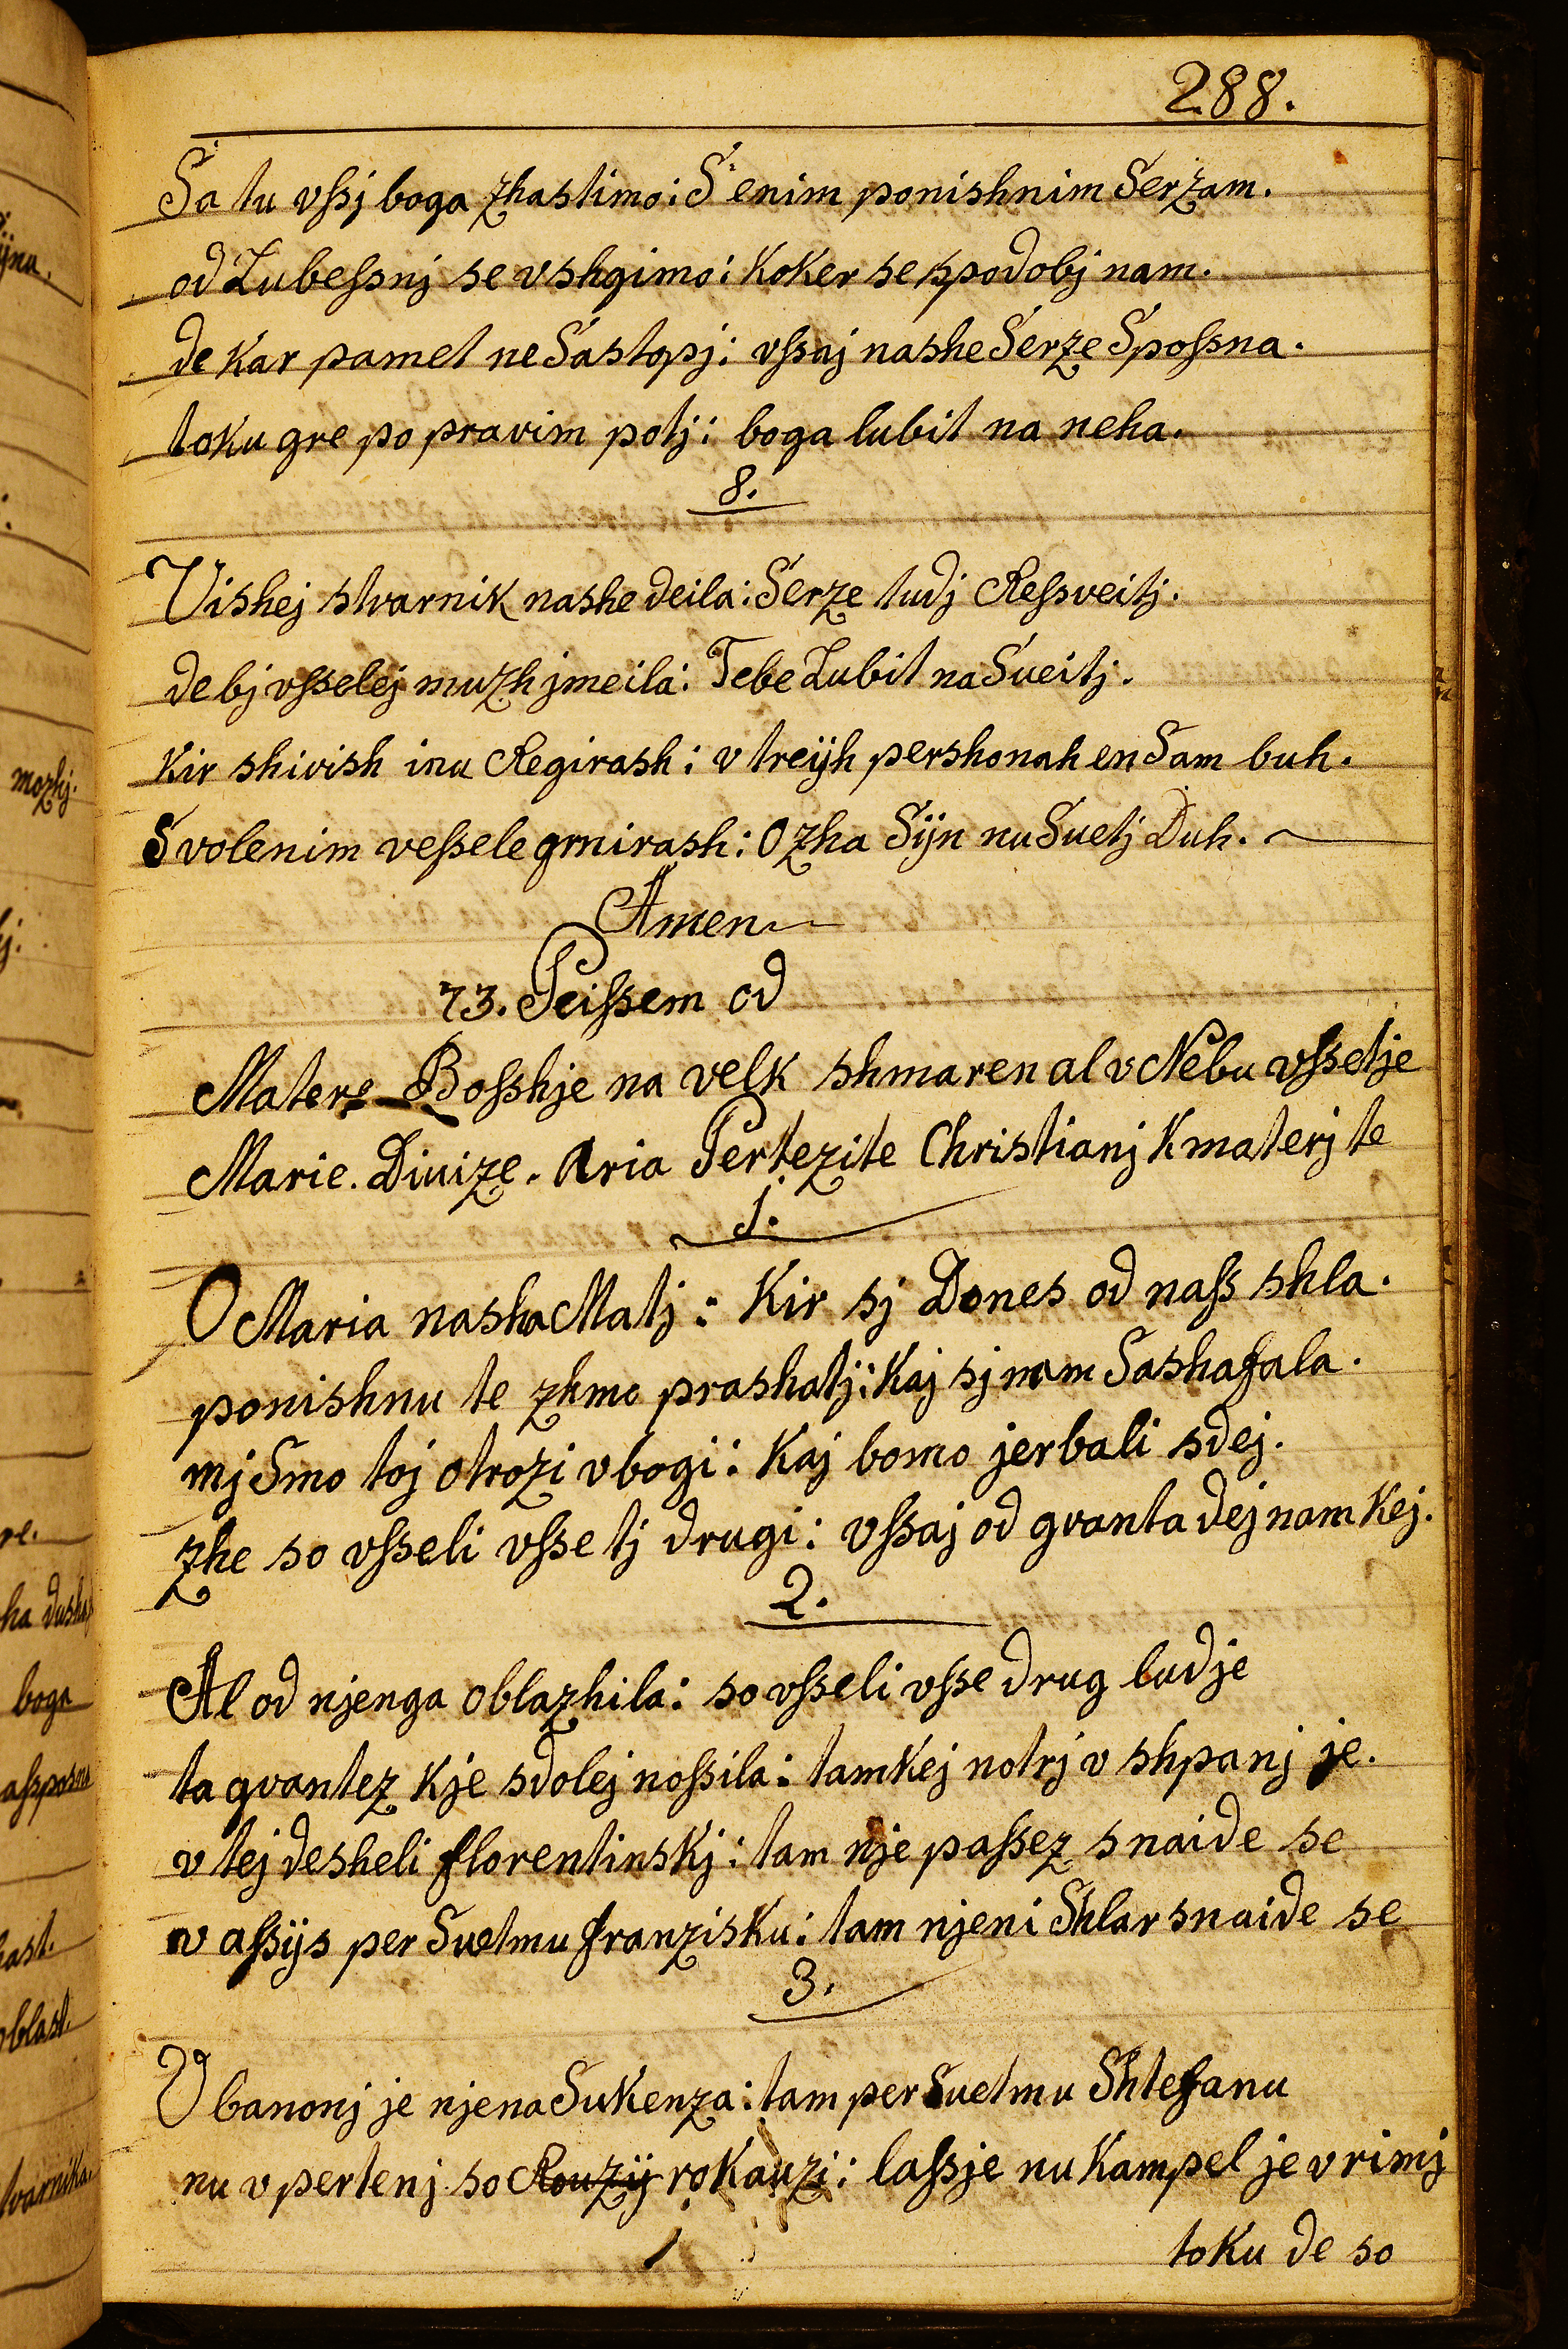 288.
Sa tu vſsj boga zhastimo: S enim ponishnim Serzam.
od Lubeſsnj se vshgimo: Koker se spodobj nam.
de Kar pamet ne Sastopj: vſsaj nashe Serze Spoſsna.
toku gre po pravim potj: boga lubit na neha.
8.
Vishej stvarnik nashe deila: Serze tudj Reſsveitj.
de bj vſselej muzh jmeila: Tebe Lubit na Sveitj.
Kir shivish inu Regirash: v treijh pershonah en Sam buh.
S volenim veſsele gmirash: Ozha Sijn nu Svetj Duh.
Amen
73. Peiſsem od
Matere Boſshje na velk shmaren al v Nebu vſsetje
Marie. Divize. Aria Pertezite Christianj K materj te
1.
O Maria nasha Matj: Kir sj Dones od naſs shla.
ponishnu te zhmo prashatj: Kaj sj nam Sashafala.
mj Smo toj otrozi vbogi: Kaj bomo jerbali sdej.
zhe so vſseli vſse tj drugi: vſsaj od gvanta dej nam Kej.
2.
Al od njenga oblazhila: so vſseli vſse drug ludje
ta gvantez Kje sdolej noſsila: tamkej notrj v shpanj je.
v tej desheli florentinskj: tam nje paſsez snaide se
v aſsijs per Svetmu franzisku: tam njeni Shlar snaide se
3.
V banonj je njena Sukenza: tam per Svetmu Shtefanu
nu v pertenj so Rouzij rokauzi: laſsje nu Kampel je v rimj
toku de so